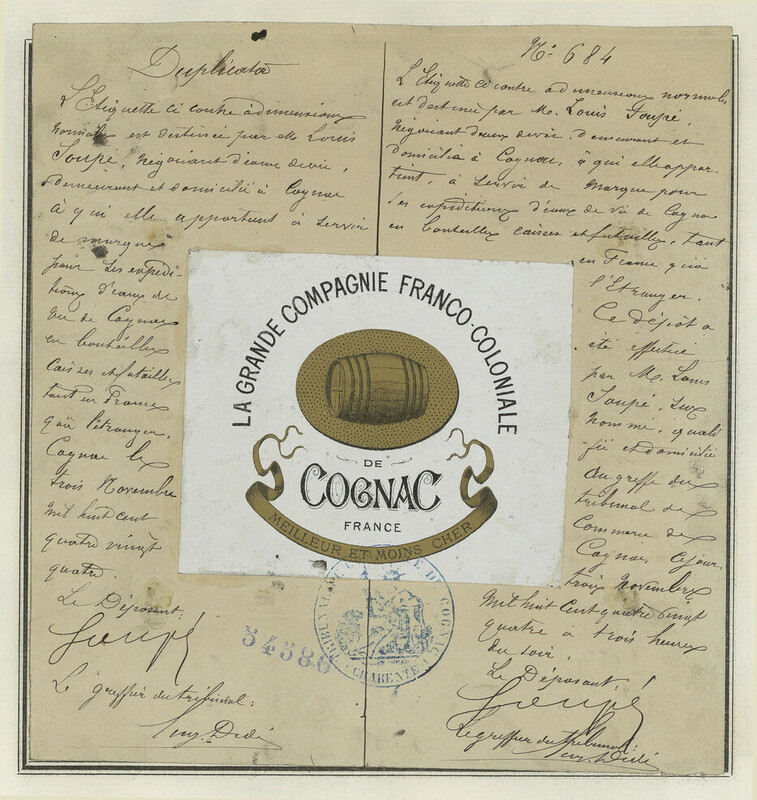 Duplicata
L'Etiquette ci contre à dimensions
normales est destinée par M. Louis
Soupé, négociant d'eaux de vie,
demeurant et domicilié à Cognac
à qui elle appartient à servir
de marque
pour ses expédi-
tions d'eaux de
vie de Cognac
en bouteilles
caisses et futailles
tant en France
qu'à l'étranger.
Cognac le
trois Novembre
Mil huit cent
quatre vingt
quatre.
Le Déposant:
Soupé
Le greffier du tribunal:
No. 684
L'Etiquette ci contre à dimensions normales
est destinée par M. Louis Soupé,
Négociant d'eaux de vie, demeurant et
domicilié à Cognac, à qui elle appar-
tient, à servir de marque pour
ses expéditions d'eaux de vie de Cognac
en bouteilles caisses et futailles, tant
en France qu'à
l'Etranger.
Ce dépôt a
été effectué
par M. Louis
Soupé, sus
nommé, quali
fié et domicilié
au greffe du
tribunal de
Commerce de
Cognac ce jour
trois Novembre
Mil huit cent quatre vingt
quatre à trois heures
du soir.
Le Déposant:
Soupé
Le greffier du tribunal:
LA GRANDE COMPAGNIE FRANCO-COLONIALE
DE
COGNAC
FRANCE
MEILLEUR ET MOINS CHER
TRIBUNAL DE COMMERCE DE COGNAC
CHARENTE
54586